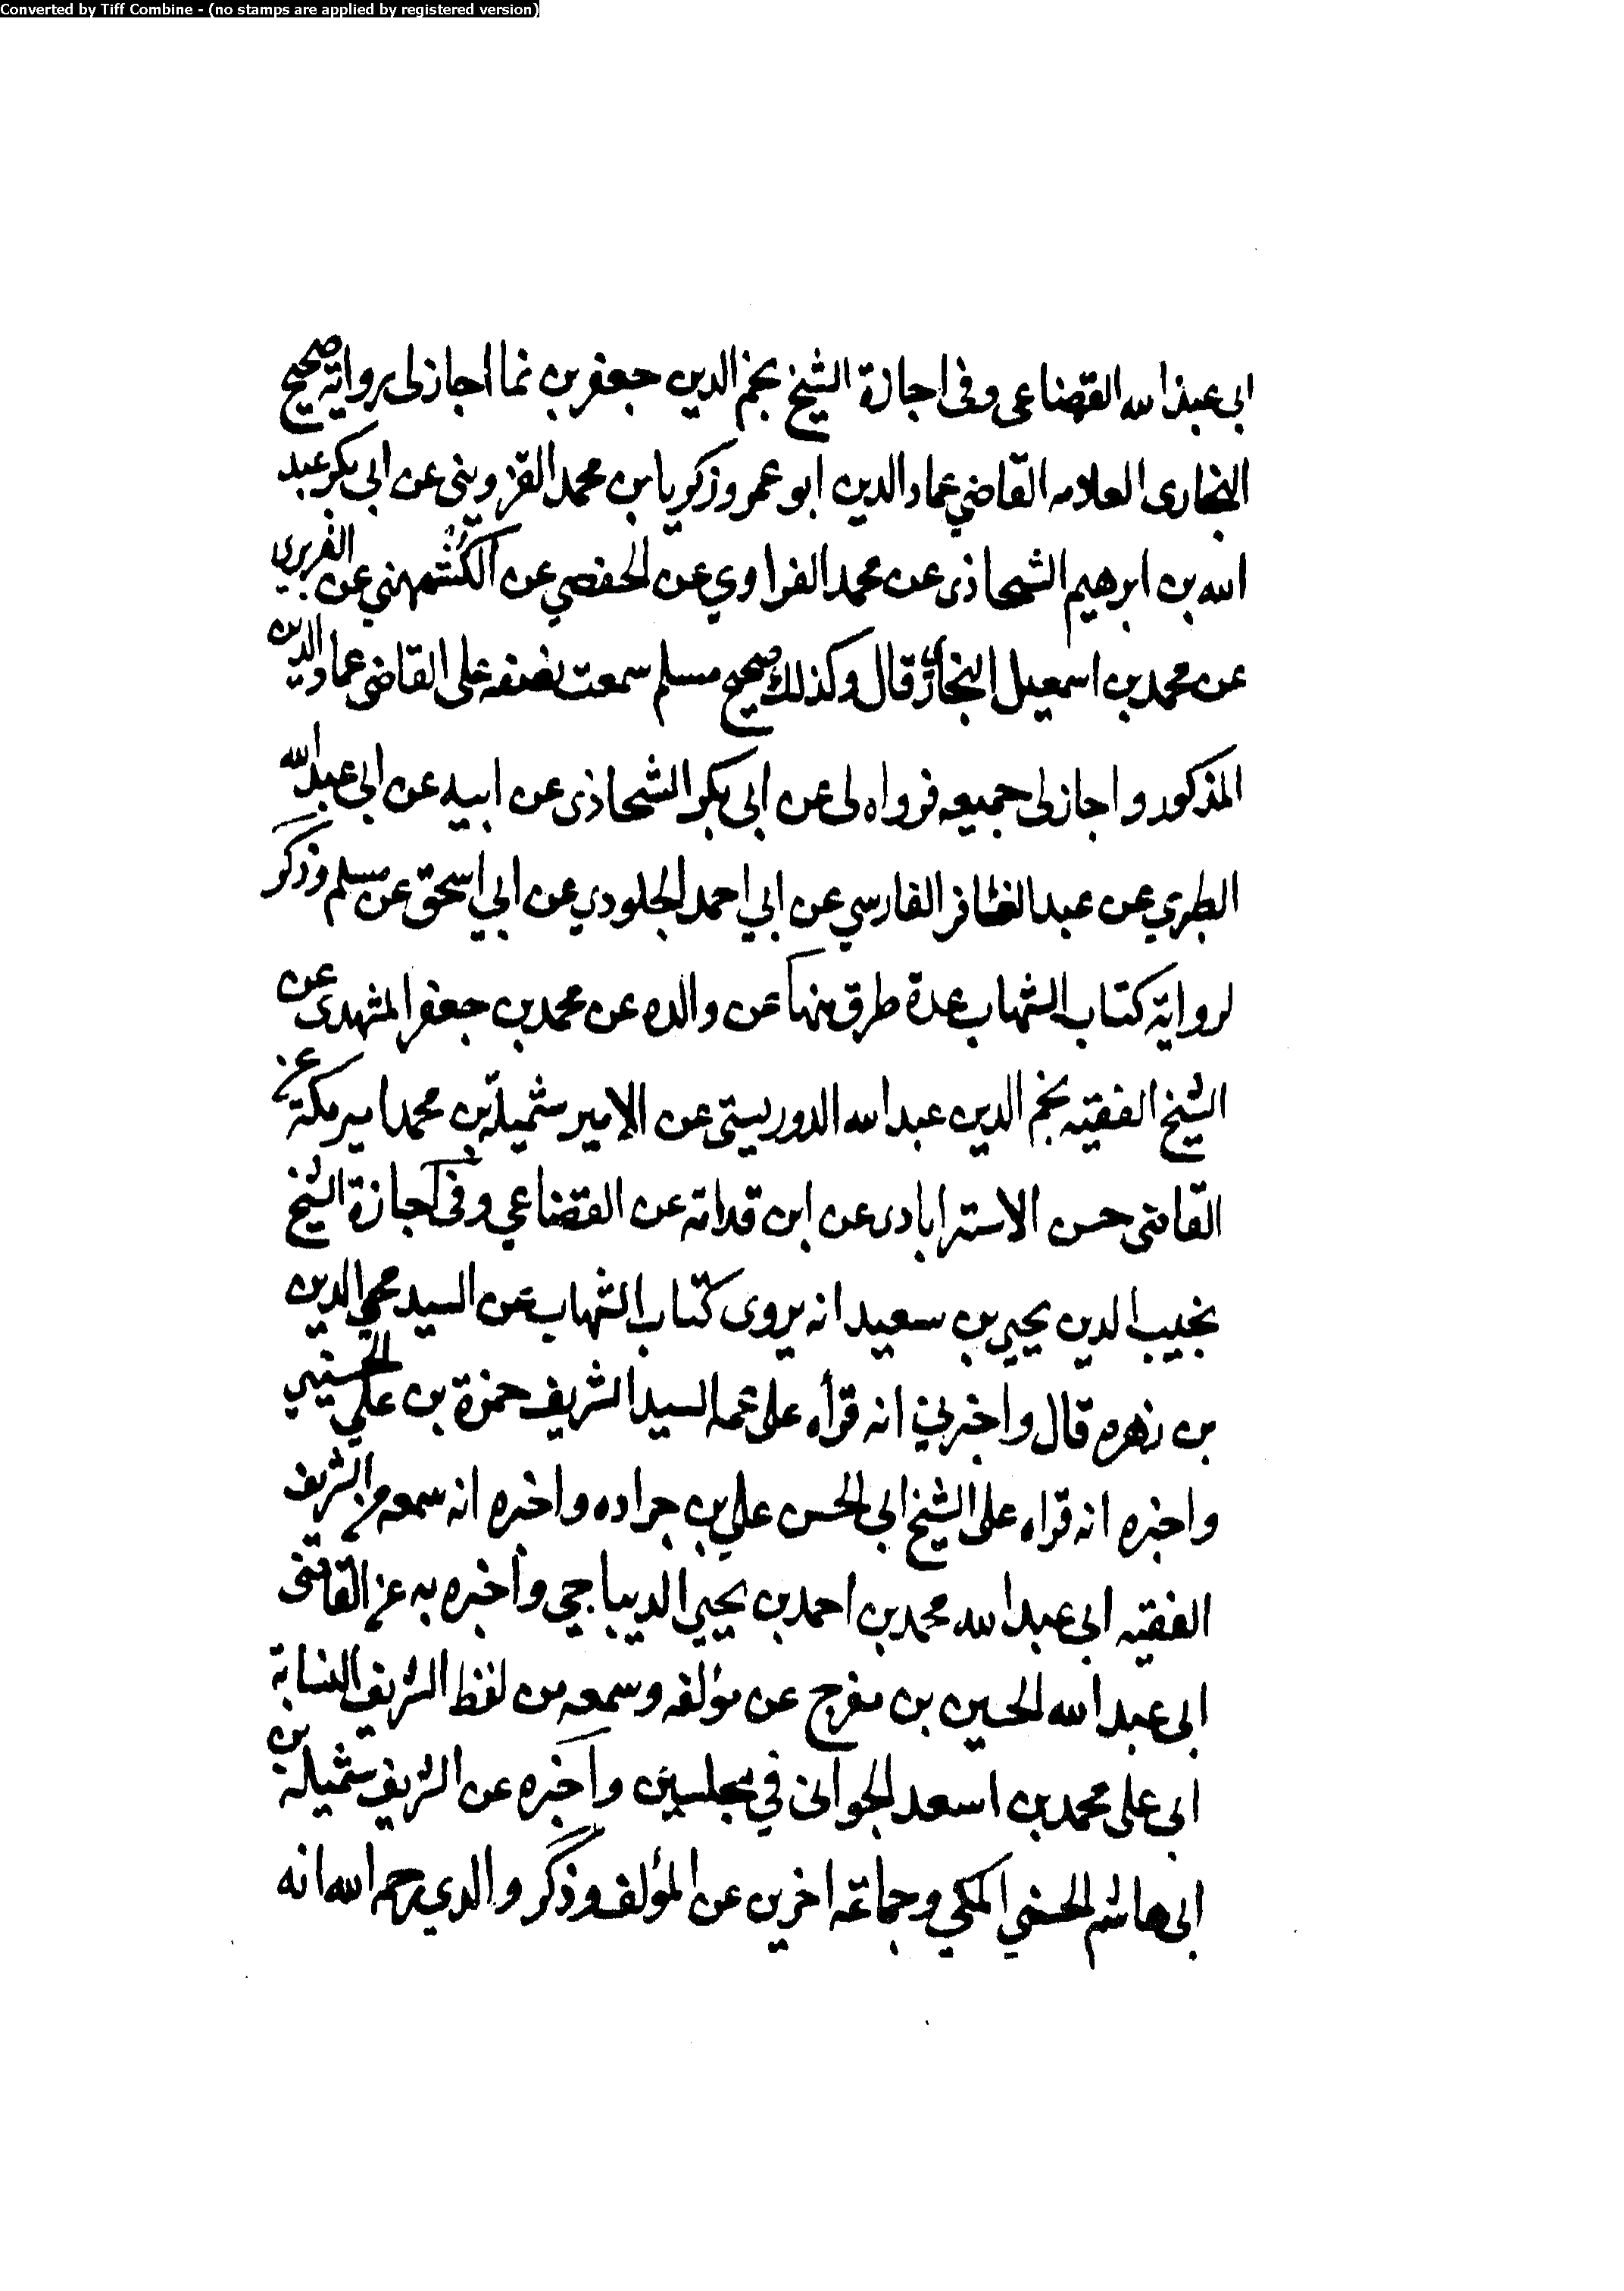 Converted by Tiff Combine - (no stamps are applied by registered version)
ابى عبد الله القضاعى وفى اجازة الشيخ نجم الدين جعفر بن نما اجاز لى برواية صحيح
البخارى العلامه القاضي عماد الدين ابو عمرو زكريا بن محمد القزوينى عن ابي بكر عبد
الله بن ابرهيم الشحاذى عن محمد الفراوي عن الحفصي عن الكشمهني عن الفربرى
عن محمد بن اسمعيل البخارى قال وكذلك صحيح مسلم سمعت نصفه على القاضى عماد الدين
المذكور واجاز لى جميعه فرواه لى عن ابى بكر الشحاذى عن ابيه عن ابي عبد الله
الطبري عن عبد الغافر الفارسي عن ابي احمد الجلودي عن ابي اسحق عن مسلم وذكر
لرواية كتاب الشهاب عدة طرق منها عن والده عن محمد بن جعفر المشهدى عن
الشيخ الفقيه نجم الدين عبد الله الدوريستى عن الامير شميلة بن محمد امير مكة عن
القاضى حسن الاسترابادى عن ابن قدامة عن القضاعي وفى اجازة الشيخ
نجيب الدين يحيى بن سعيد انه يروى كتاب الشهاب عن السيد محيى الدين
بن زهره قال واخبرني انه قرأه على عمه السيد الشريف حمزة بن علي الحسيني
واخبره انه قراه على الشيخ ابى الحسن علي بن جراده واخبره انه سمعه من الشريف
الفقيه ابى عبد الله محمد بن احمد بن يحيي الديباجي واخبره به عن القاضى
ابى عبد الله الحسين بن مفرج عن مؤلفه وسمعه من لفظ الشريف النسابة
ابى على محمد بن اسعد الجوانى في مجلسين واخبره عن الشريف شميلة بن
ابى هاشم الحسني المكي وجماعة اخرين عن المؤلف وذكر والدي رحمه الله انه